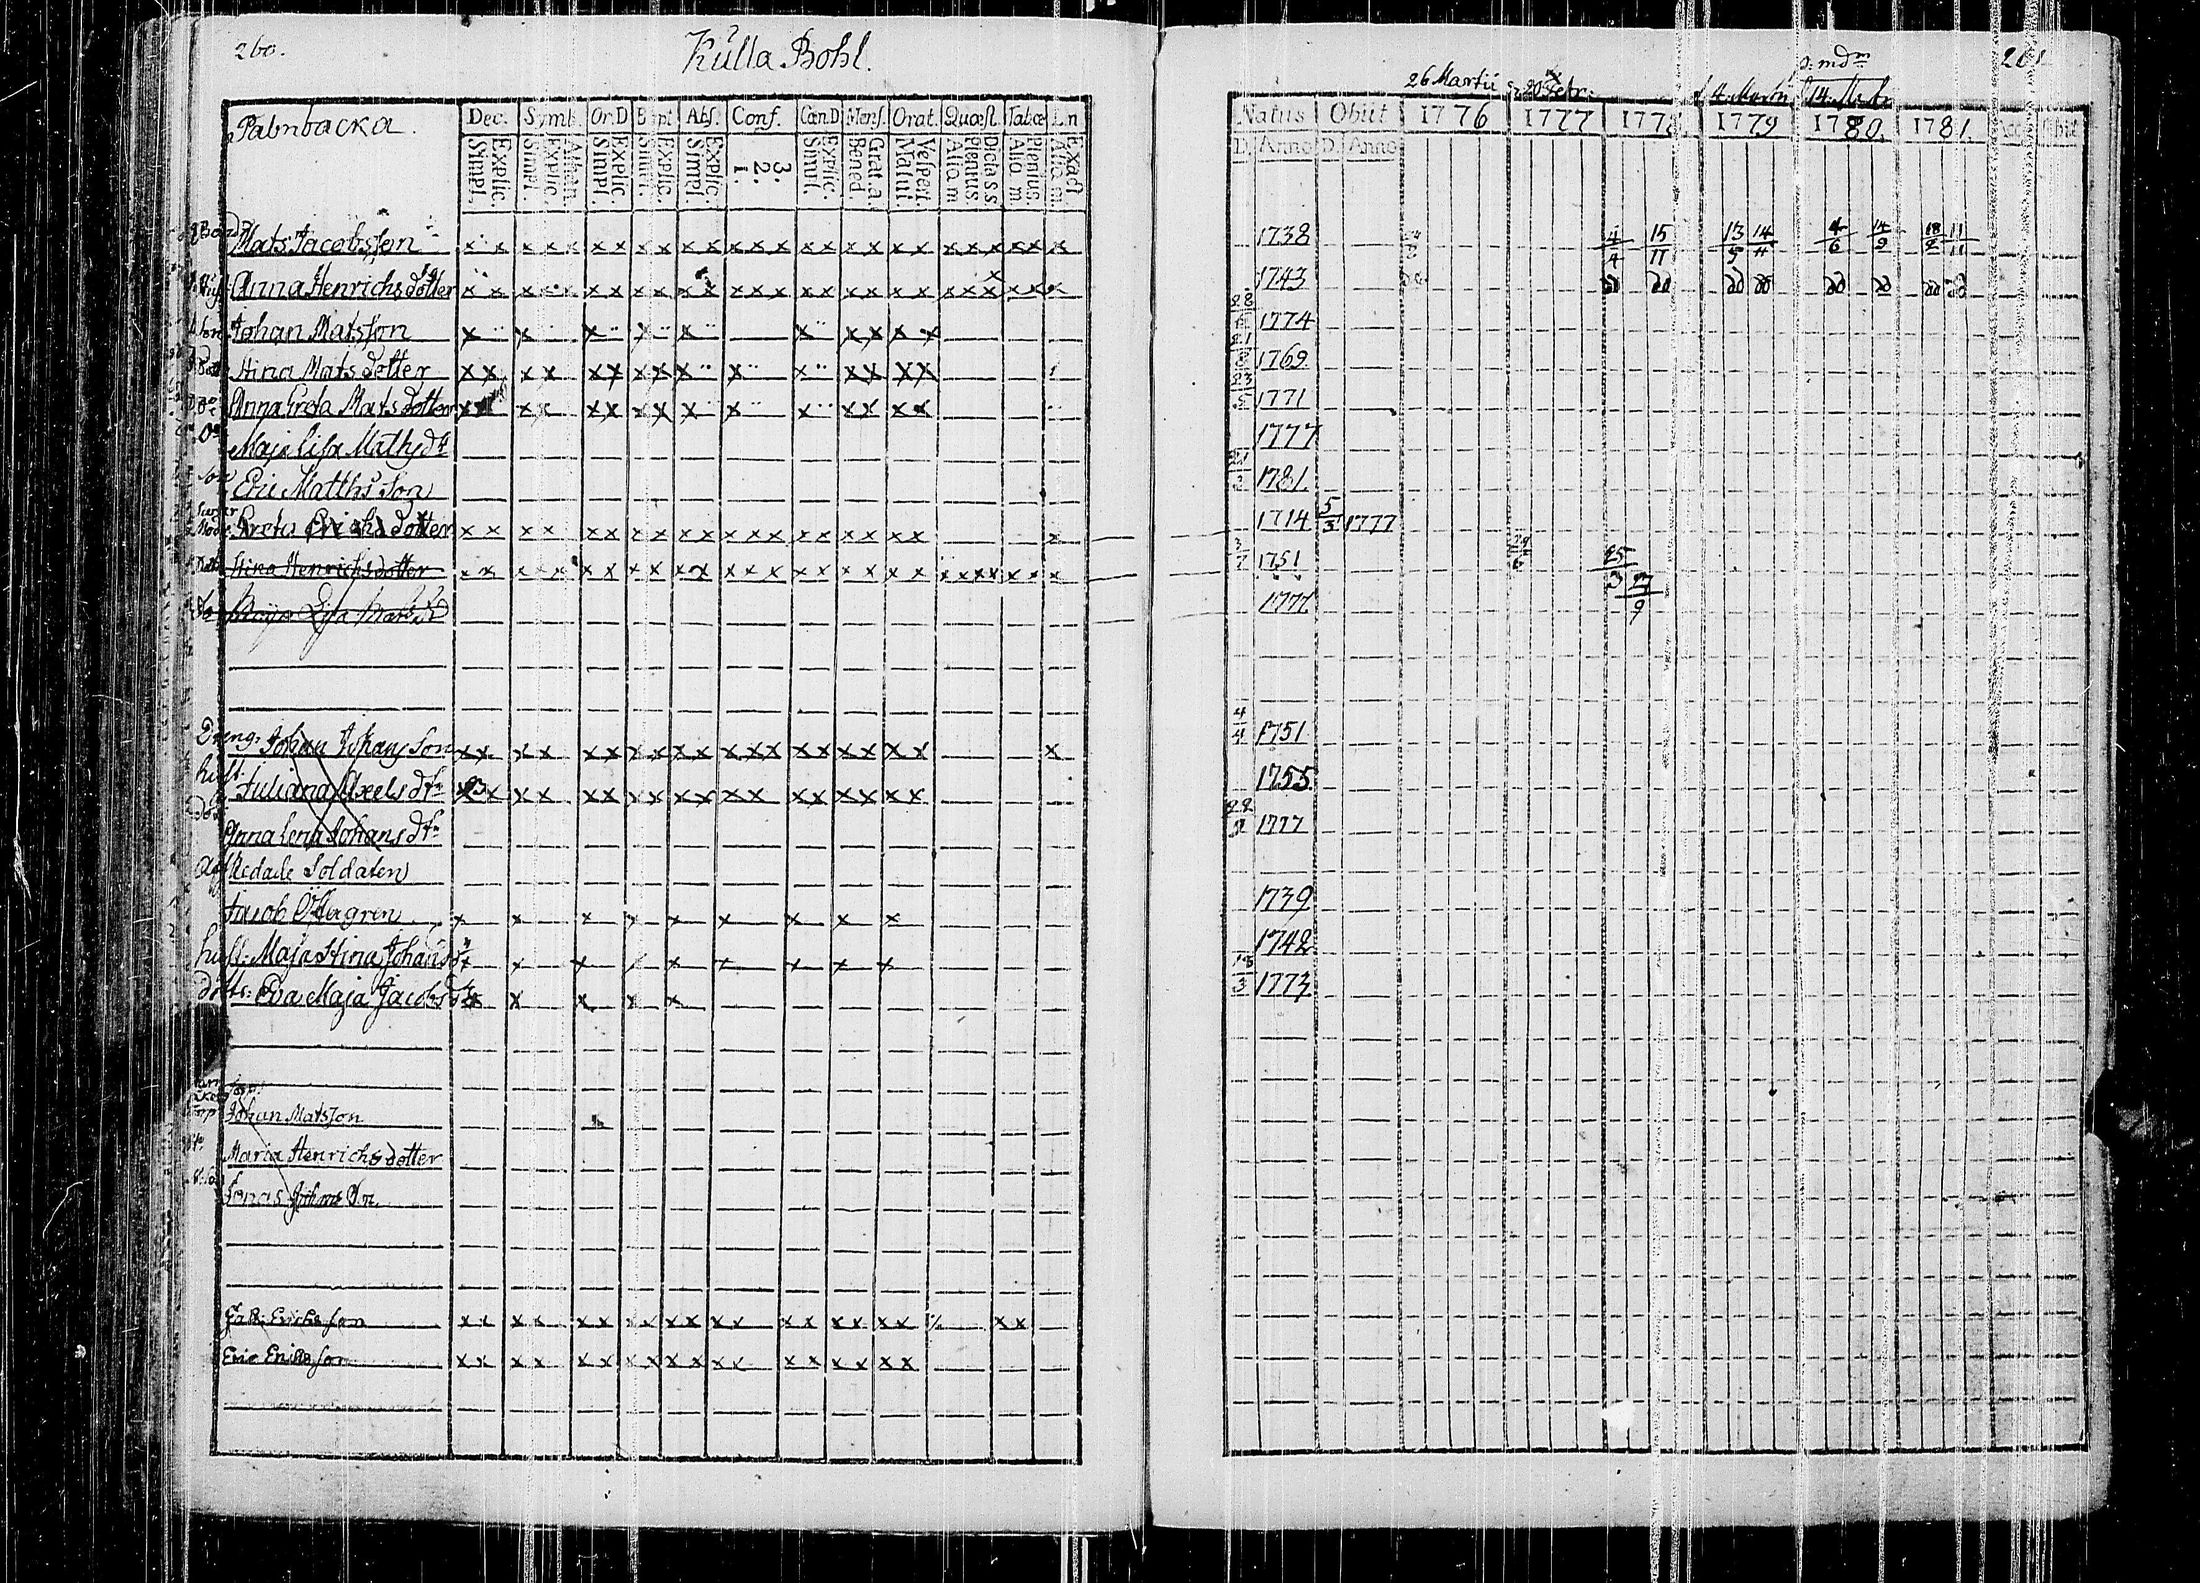 260.
Kulla Bohl.
Pabnbacka.
Dec. Symb. Or.D Bapt. Abs. Conf. Cœn.D Mens. Orat. Quæst. Tabœ Ln
Simpl. Explic. Simpl. Explic. Athan. Simpl. Explic. Simpl. Explic. Simpl. Explic. 1. 2. 3. Simpl. Explic. Bened. Grat. a. Matut. Vespert. Alio m Plenius Dicta s s Alio m. Plenius. Alio m. Exact
Mats Jacobsson x x x x x x x x x x x x x x x x x x x x x x x x
Anna Henrichsdotter x x x x x x x x x x x x x x x x x x x x x x x x x
Johan Matsson x x x x x x x x x x
Stina Matsdotter x x x x x x x x x x x x x x x
Anna Greta Matsdotter x x x x x x x x x x x x x x
Maja Lisa Mathsdr
Son Eric Matths Son
Greta Erichsdotter x x x x x x x x x x x x x x x x x x x x
Stina Henrichsdotter x x x x x x x x x x x x x x x x x x x x x x x x x x x
Maja Lisa Matsd
Dreng. Johan Johansson x x x x x x x x x x x x x x x x x x x x
hust. Juliana Axels dtr x x x x x x x x x x x x x x x x x
Anna Lena Johans dtr
Afskedade Soldaten
Jacob x x x x x x x x x
hust. Maja Stina Johans x x x x x x x x
Eva Maja Jacobs x x x x x
Torp Johan Matsson
Maria Henrichsdotter
Jonas Johansson
Jak. Erichsson x x x x x x x x x x x x x x x x x x x x
Eric Ericsson x x x x x x x x x x x x x x x x x x
261
26 Martii 20 Febr. 4 Martii 14 Martii
Natus Obiit 1776 1777 1778 1779 1780. 1781.
D. Anno D. Anno
1738 4/4 15/11 13/5 14/11 4/6 14/9 18/2 11/11
1743 do do do do do do do do
1774
1769
23/5 1771
1777
21/3 1781
1714 5/3 1777
3/7 1751 25/3 27/9
1777
4/4 1751
1755
22/9 1777
1739
1742
15/3 1773